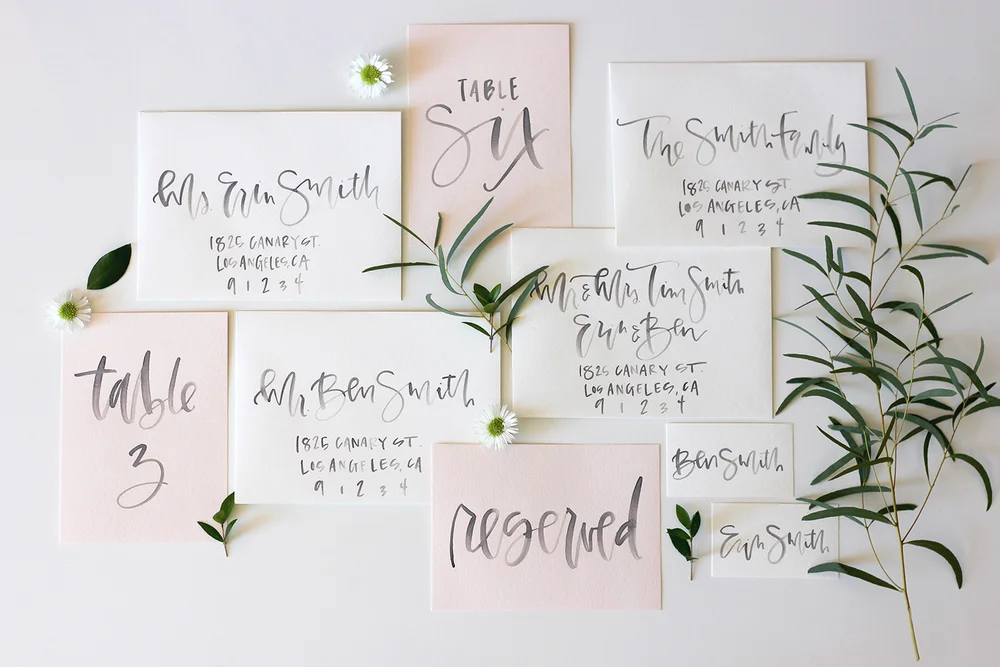 TABLE
six
The Smith Family
1825 CANARY ST.
LOS ANGELES, CA
9 1 2 3 4
Ms. Erin Smith
1825 CANARY ST.
LOS ANGELES, CA
9 1 2 3 4
Mr. & Mrs. Tim Smith
Erin & Ben
1825 CANARY ST.
LOS ANGELES, CA
9 1 2 3 4
table
3
Mr. Ben Smith
1825 CANARY ST.
LOS ANGELES, CA
9 1 2 3 4
reserved
Ben Smith
Erin Smith